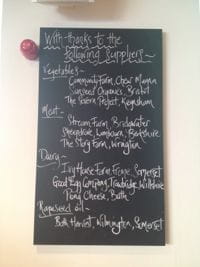 With thanks to the
following suppliers -
Vegetables -
Community Farm, Chew Magna
Sunseed Organics, Bristol
The Severn Project, Keynsham
Meat -
Stream Farm, Bridgwater
Sheepdrove, Lambourn, Berkshire
The Story Farm, Wrington
Dairy -
Ivy House Farm, Frome, Somerset
Good Egg Company, Trowbridge, Wiltshire
Pong Cheese, Bath
Rapeseed oil -
Bath Harvest, Wilmington, Somerset